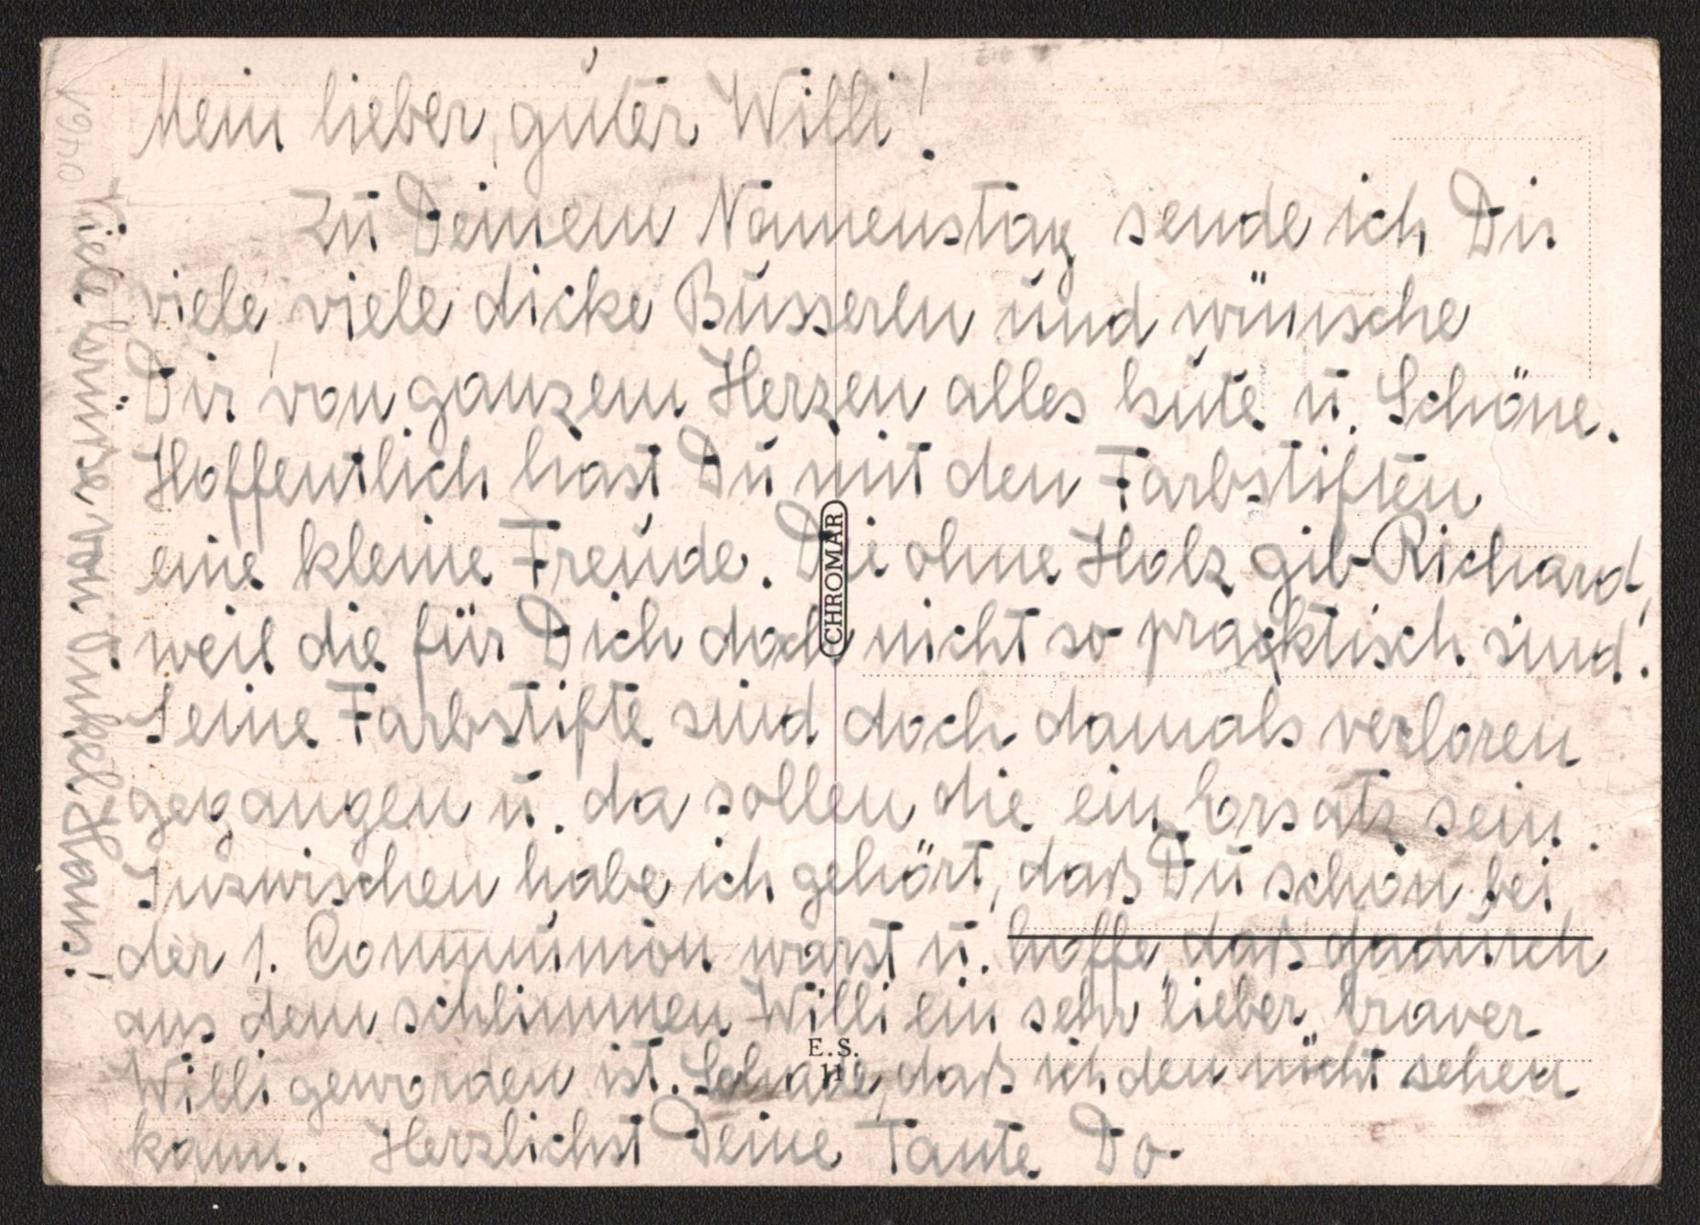 Mein lieber, guter Willi!
Zu Deinem Namenstag sende ich Dir
viele, viele dicke Busserln und wünsche
Dir von ganzem Herzen alles Gute u. Schöne.
Hoffentlich hast Du mit den Farbstiften
eine kleine Freude. Die ohne Holz gib Richard,
weil die für Dich doch nicht so praktisch sind.
Seine Farbstifte sind doch damals verloren
gegangen u. da sollen die ein Ersatz sein.
Inzwischen habe ich gehört, daß Du schon bei
der 1. Communion warst u. hoffe, daß dadurch
aus dem schlimmen Willi ein sehr lieber, braver
Willi geworden ist. Schade, daß ich den nicht sehen
kann. Herzlichst Deine Tante Do
Viele Grüße von Onkel Hans!
CHROMAR
E.S.
11